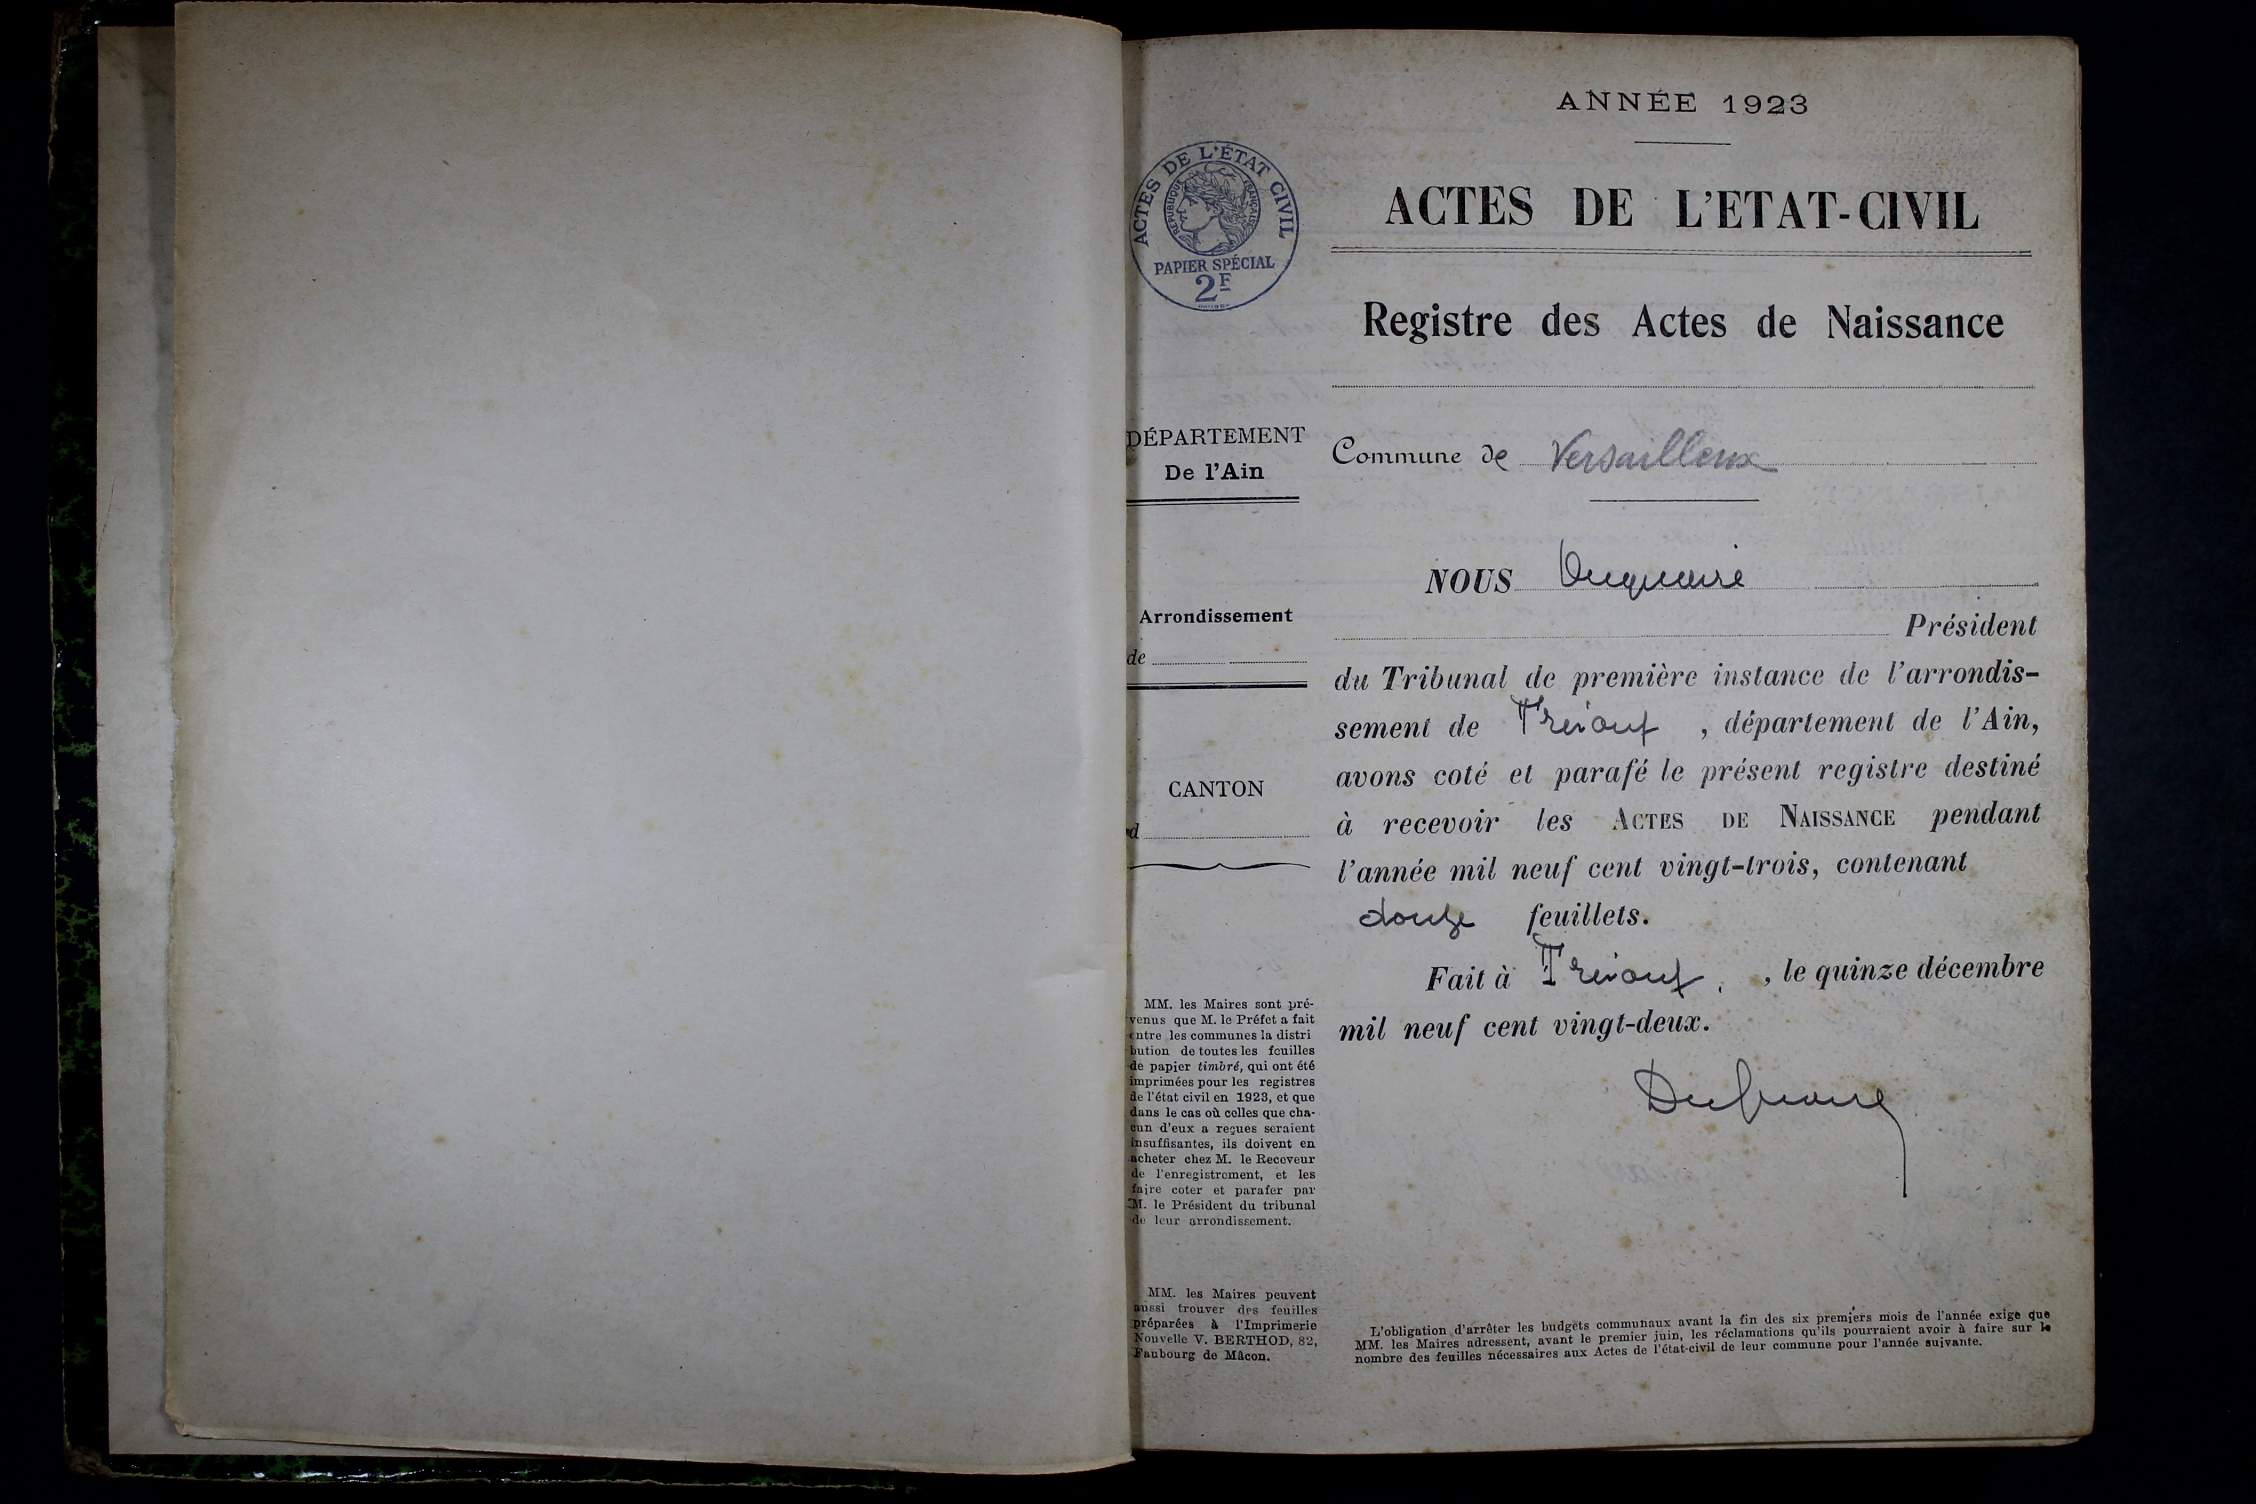 ANNÉE 1923
ACTES DE L'ÉTAT CIVIL
RÉPUBLIQUE FRANÇAISE
PAPIER SPÉCIAL
2F
ACTES DE L'ETAT-CIVIL
Registre des Actes de Naissance
DÉPARTEMENT
De l'Ain
Arrondissement
de
CANTON
d
MM. les Maires sont pré-
venus que M. le Préfet a fait
entre les communes la distri
bution de toutes les feuilles
de papier timbré, qui ont été
imprimées pour les registres
de l'état civil en 1923, et que
dans le cas où celles que cha-
cun d'eux a reçues seraient
insuffisantes, ils doivent en
acheter chez M. le Receveur
de l'enregistrement, et les
faire coter et parafer par
M. le Président du tribunal
de leur arrondissement.
MM. les Maires peuvent
aussi trouver des feuilles
préparées à l'Imprimerie
Nouvelle V. BERTHOD, 82,
Faubourg de Mâcon.
Commune de Versailleux
NOUS Duquaire
Président
du Tribunal de première instance de l'arrondis-
sement de Trévoux, département de l'Ain,
avons coté et parafé le présent registre destiné
à recevoir les ACTES DE NAISSANCE pendant
l'année mil neuf cent vingt-trois, contenant
douze feuillets.
Fait à Trévoux, le quinze décembre
mil neuf cent vingt-deux.
Duquaire
L'obligation d'arrêter les budgets communaux avant la fin des six premiers mois de l'année exige que
MM. les Maires adressent, avant le premier juin, les réclamations qu'ils pourraient avoir à faire sur le
nombre des feuilles nécessaires aux Actes de l'état-civil de leur commune pour l'année suivante.